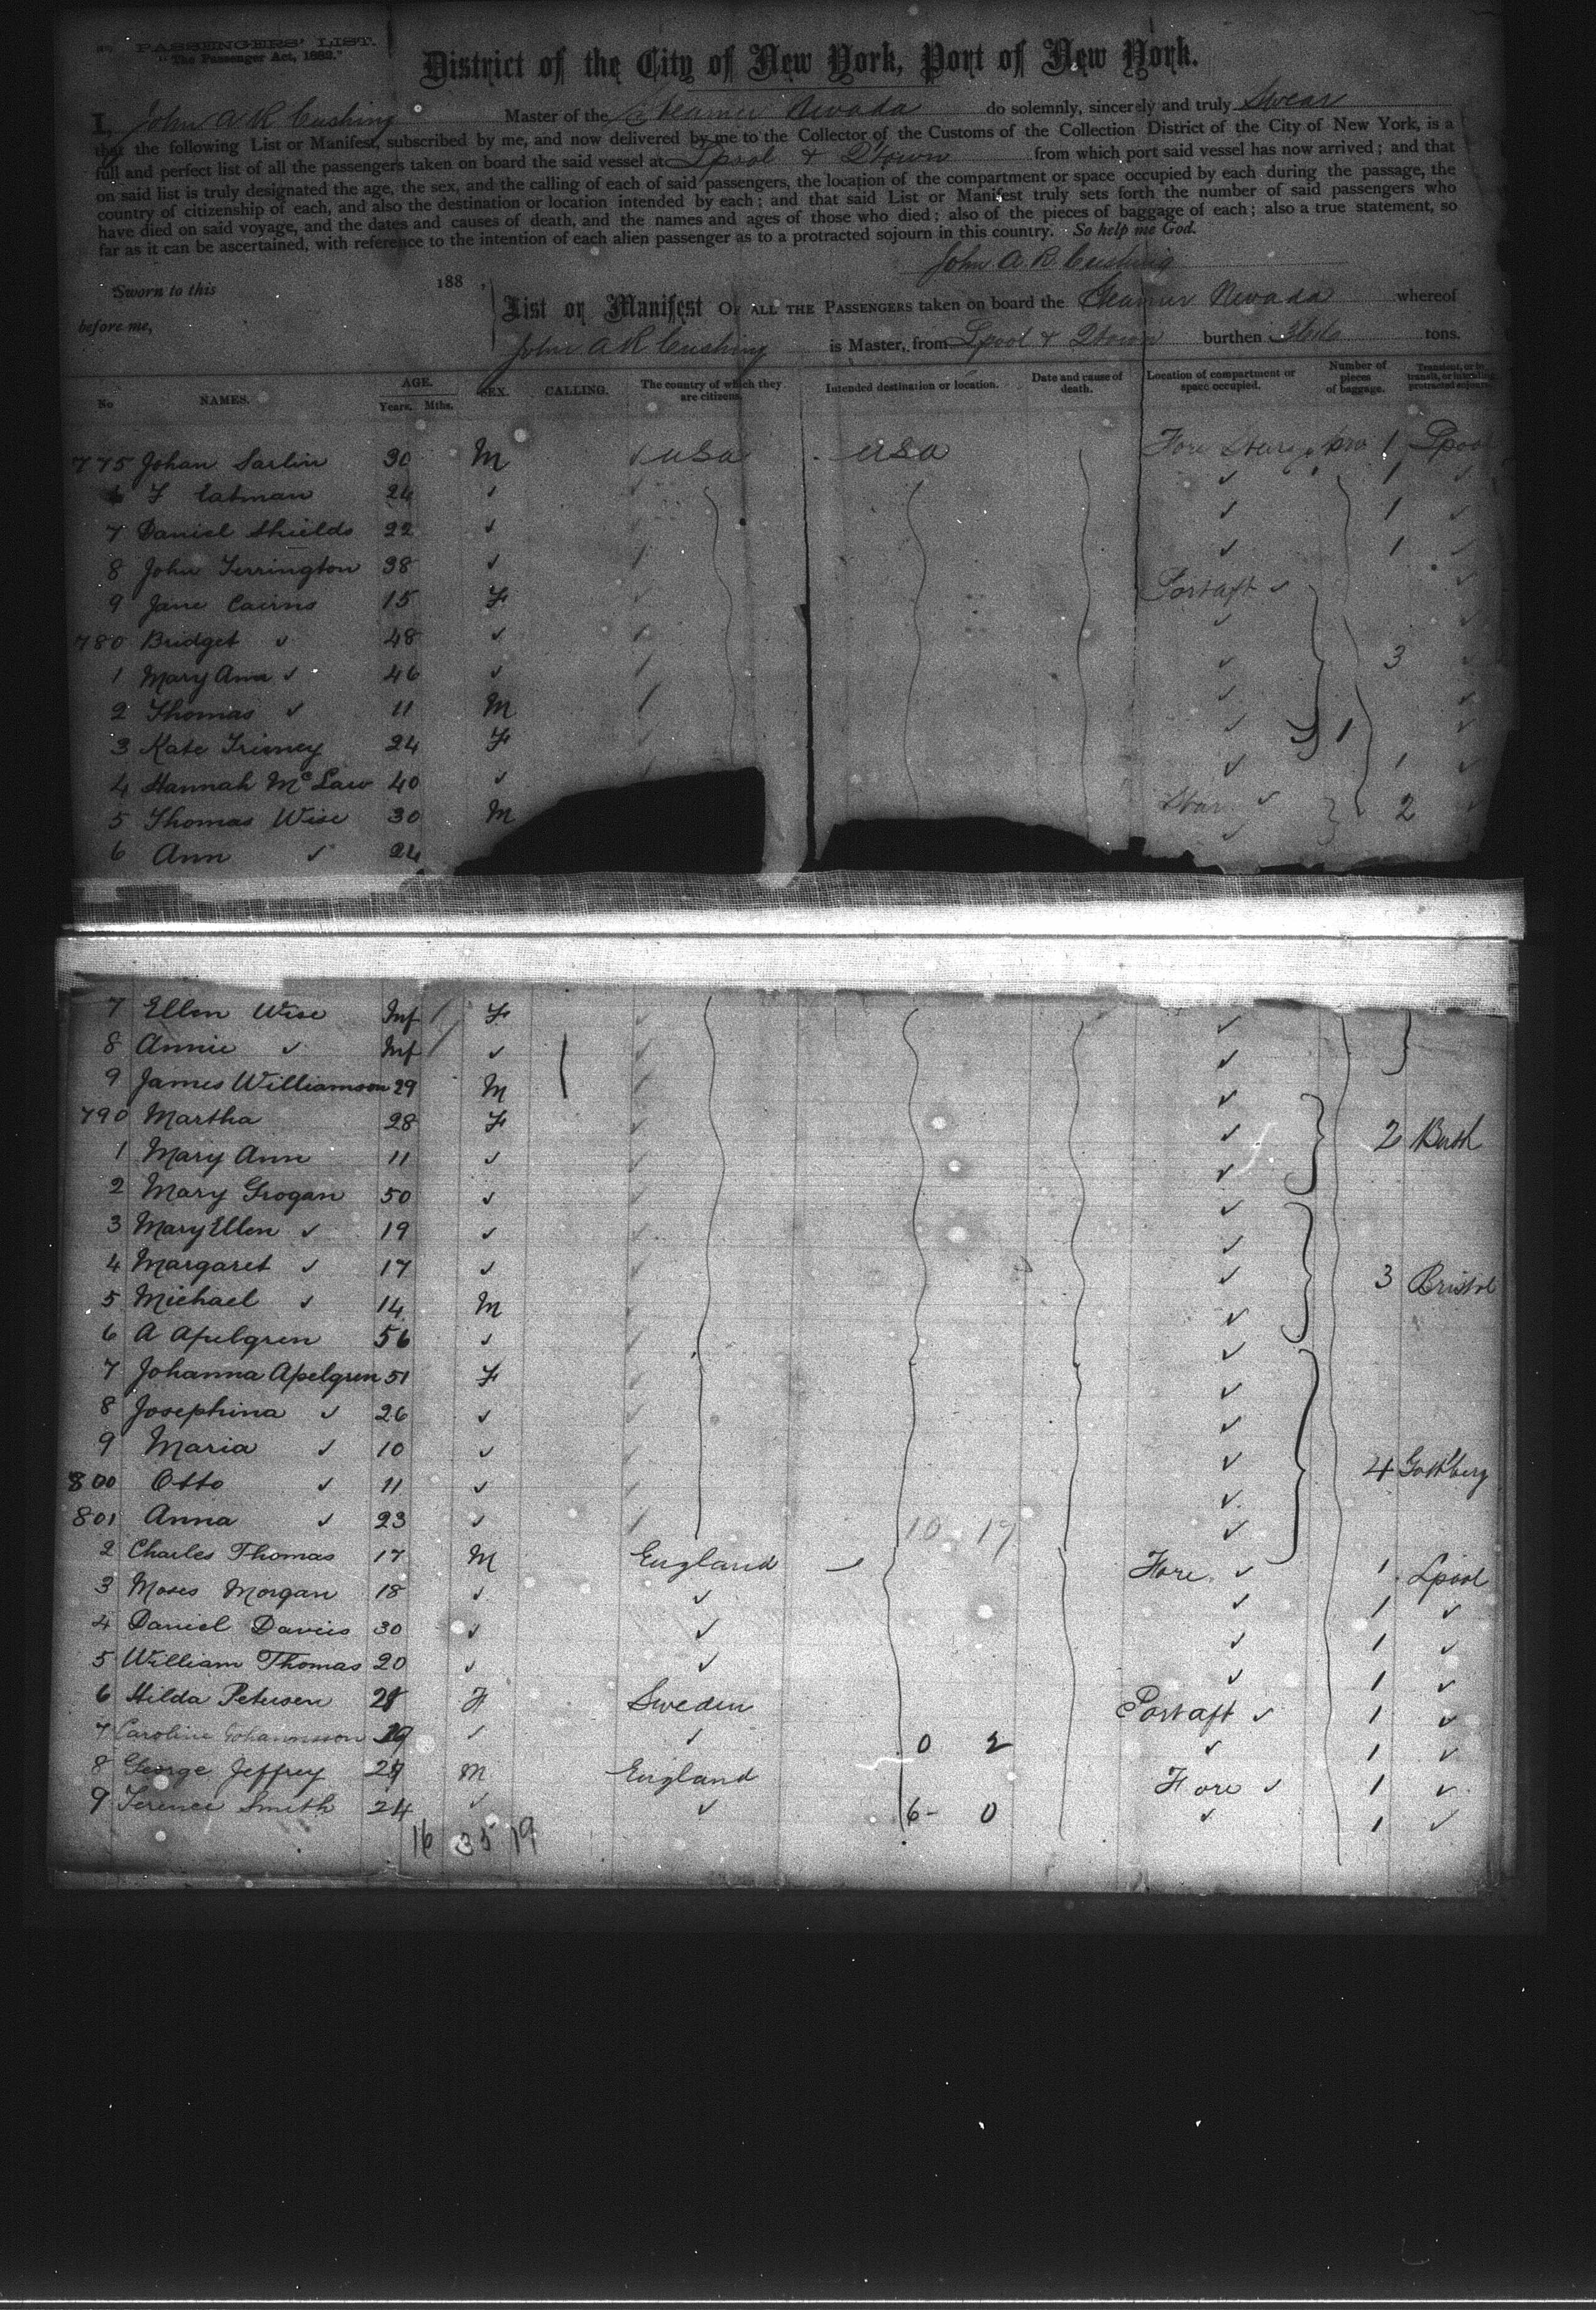 PASSENGERS' LIST.
"The Passenger Act, 1882."
District of the City of New York, Port of New York.
I, John A R Cushing Master of the Steamer Nevada do solemnly, sincerely and truly Swear
that the following List or Manifest, subscribed by me, and now delivered by me to the Collector of the Customs of the Collection District of the City of New York, is a
full and perfect list of all the passengers taken on board the said vessel at Lpool & Qtown from which port said vessel has now arrived; and that
on said list is truly designated the age, the sex, and the calling of each of said passengers, the location of the compartment or space occupied by each during the passage, the
country of citizenship of each, and also the destination or location intended by each; and that said List or Manifest truly sets forth the number of said passengers who
have died on said voyage, and the dates and causes of death, and the names and ages of those who died; also of the pieces of baggage of each; also a true statement, so
far as it can be ascertained, with reference to the intention of each alien passenger as to a protracted sojourn in this country. So help me God.
John A. R. Cushing
Sworn to this 188 ,
before me,
List or Manifest OF ALL THE PASSENGERS taken on board the Steamer Nevada whereof
John A R Cushing is Master, from Lpool & Qtown burthen tons.
No NAMES. AGE. Years. Mths. SEX. CALLING. The country of which they are citizens. Intended destination or location. Date and cause of death. Location of compartment or space occupied. Number of pieces of baggage. Transient, or in transit, or intending protracted sojourn.
775 Johan Sarlin 30 M ✓ USA USA Fore 1 Lpool
6 F Eatman 24 ✓ ✓ ✓ 1 ✓
7 Daniel Shields 22 ✓ ✓ 1 ✓
8 John Terrington 38 ✓ ✓ 1 ✓
9 Jane Cairns 15 F ✓ Portaft ✓ ✓
780 Bridget ✓ 48 ✓ ✓ ✓
1 Mary Ann ✓ 46 ✓ ✓ 3 ✓
2 Thomas ✓ 11 M ✓ ✓
3 Kate 24 F ✓ 1 ✓
4 Hannah McLaw 40 ✓ ✓ 1 ✓
5 Thomas Wise 30 M ✓ 2 ✓
6 Ann ✓ 24 ✓
7 Ellen Wise Inf F ✓ ✓
8 Annie ✓ Inf ✓ ✓ ✓
9 James Williamson 29 M ✓
790 Martha 28 F ✓ ✓ 2
1 Mary Ann 11 ✓ ✓ ✓
2 Mary Grogan 50 ✓ ✓ ✓
3 Mary Ellen ✓ 19 ✓ ✓ ✓
4 Margaret ✓ 17 ✓ ✓ ✓ 3 Bristol
5 Michael ✓ 14 M ✓
6 A Apelgren 56 ✓ ✓
7 Johanna Apelgren 51 F ✓ ✓
8 Josephina ✓ 26 ✓ ✓
9 Maria ✓ 10 ✓ ✓ 4 Gothberg
800 Otto ✓ 11 ✓ ✓
801 Anna ✓ 23 ✓ 10 17 ✓
2 Charles Thomas 17 M England Fore ✓ 1 Lpool
3 Moses Morgan 18 ✓ ✓ ✓ 1 ✓
4 Daniel Davies 30 ✓ ✓ ✓ 1 ✓
5 William Thomas 20 ✓ ✓ ✓ 1 ✓
6 Hilda Petersen F Sweden Portaft ✓ 1 ✓
7 Caroline Johannsson ✓ ✓ 0 2 ✓ 1 ✓
8 George Jeffrey M England Fore ✓ 1 ✓
9 Terence Smith 24 ✓ ✓ 6 - 0 ✓ 1 ✓
16 35 19